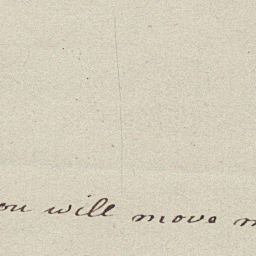 ou will move